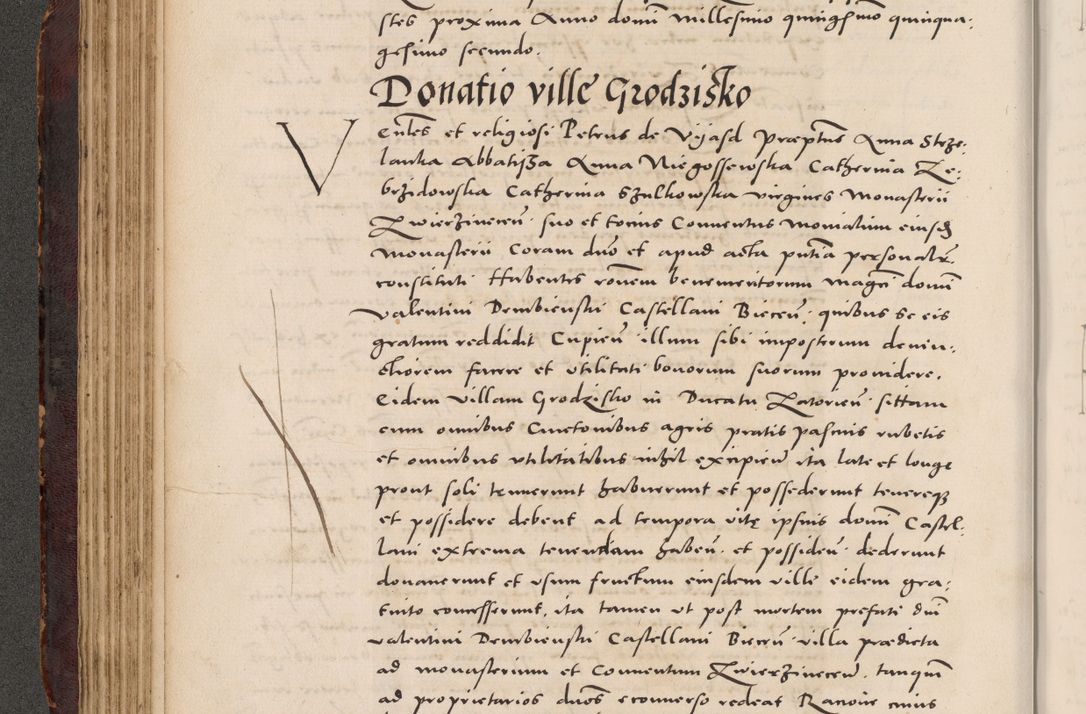 stes proxima Anno domi millesimo quingesimo quinqua-
gesimo secundo.
Donatio ville Grodzisko
Venles et religiosi Petrus de Vijasd Præptus Anna Strze-
lanka Abbatissa Anna Niegossewska Catherina Ze-
brzidowska Catherina Szulkowska virgines Monasterii
Zwierzinecen suo et tocius Conventus monialium eiusd
monasterii Coram duo et apud acta putia personalr
constituti Habentes ronem benemeritorum magci domi
Valentini Dembienski Castellani Biecen, quibus se eis
gratum reddidit Cupien illum sibi imposterum devin-
ctiorem facere et utilitati bonorum suorum providere.
Eidem villam Grodzisko in Ducatu Zatorien sittam
cum omnibus Cmetonibus agris pratis pascuis rubetis
et omnibus utilitatibus nihil excipien ita late et longe
prout soli tenuerunt habuerunt et possederunt tenereq
et possidere debent ad tempora vitę ipsius domi Castel-
lani extrema tenendam haben et possiden dederunt
donaverunt et usum fructum eiusdem ville eidem gra-
tuito concesserunt, ita tamen ut post mortem prefati dni
Valentini Dembienski Castellani Biecen villa prædicta
ad monasterium et Conventum Zwierzinecen, tanqm
ad proprietarios duos econverso redeat Racione cuius